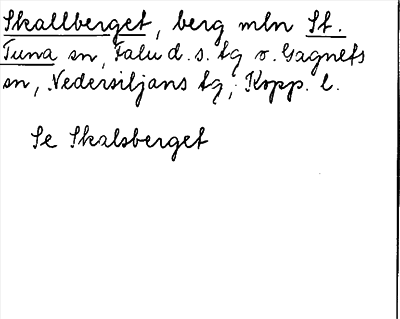 Skallberget, berg mln St.
Tuna sn, Falu d. s. tg o. Gagnefs
sn, Nedersiljans tg, Kopp. l.
Se Skalsberget